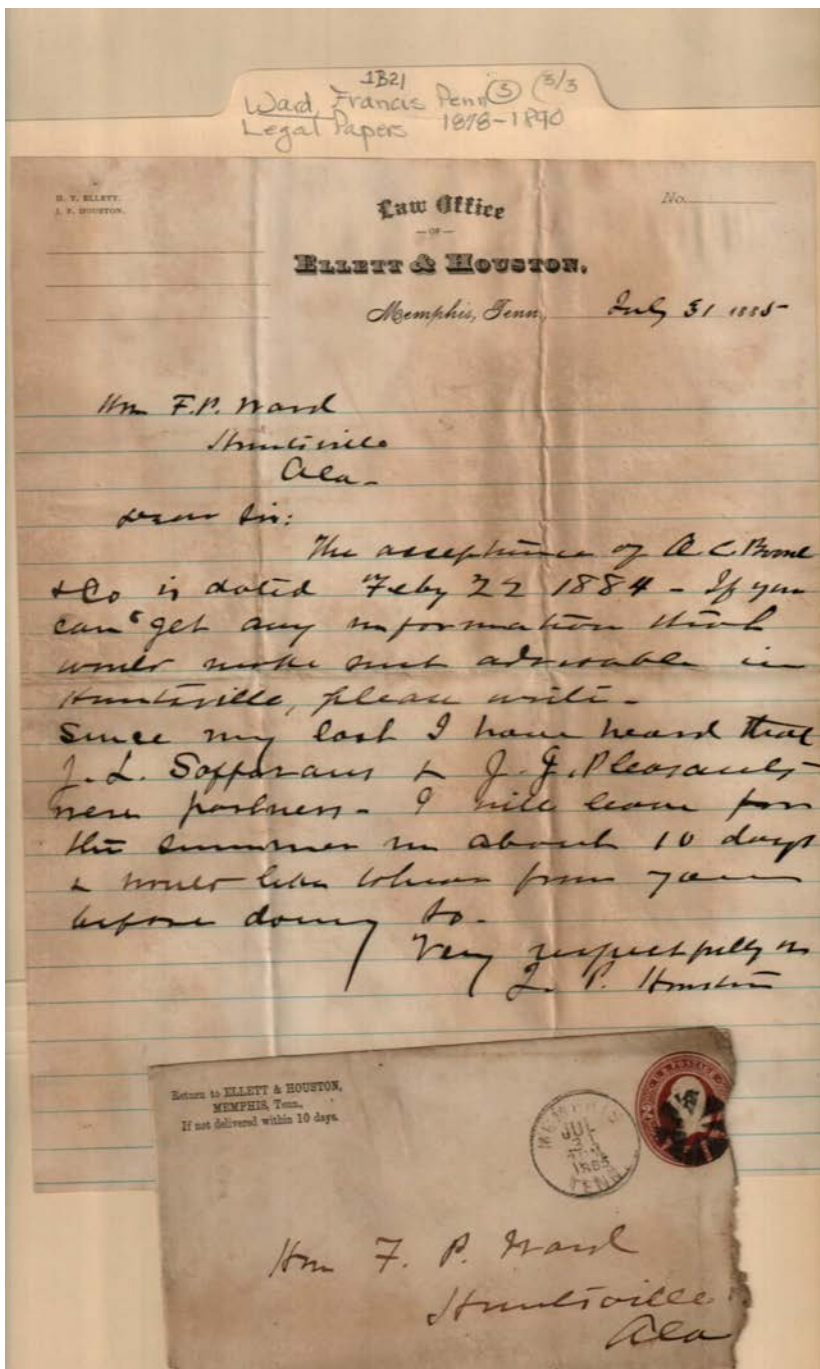 1B21
Ward, Francis Penn (3) (3/3
Legal Papers 1878-1890
H. T. ELLETT.
J. P. HOUSTON.
Law Office
— OF —
ELLETT & HOUSTON.
No.
Memphis, Tenn, July 31 1885
Hon F.P. Ward
Huntsville
Ala-
Dear Sir:
The acceptance of A C
& Co is dated Feby 22 1884 - If you
can get any information that
would make suit advisable in
Huntsville, please write -
Since my last I have heard that
J. L. Saffarans & J. J. Pleasants
were partners - I will leave for
the summer in about 10 days
& would like to hear from you
before doing so.
Very respectfully
J. P. Houston
Return to ELLETT & HOUSTON,
MEMPHIS, Tenn.,
If not delivered within 10 days.
MEMPHIS
JUL
31
1885
TENN.
U.S. POSTAGE
Hon F. P. Ward
Huntsville
Ala